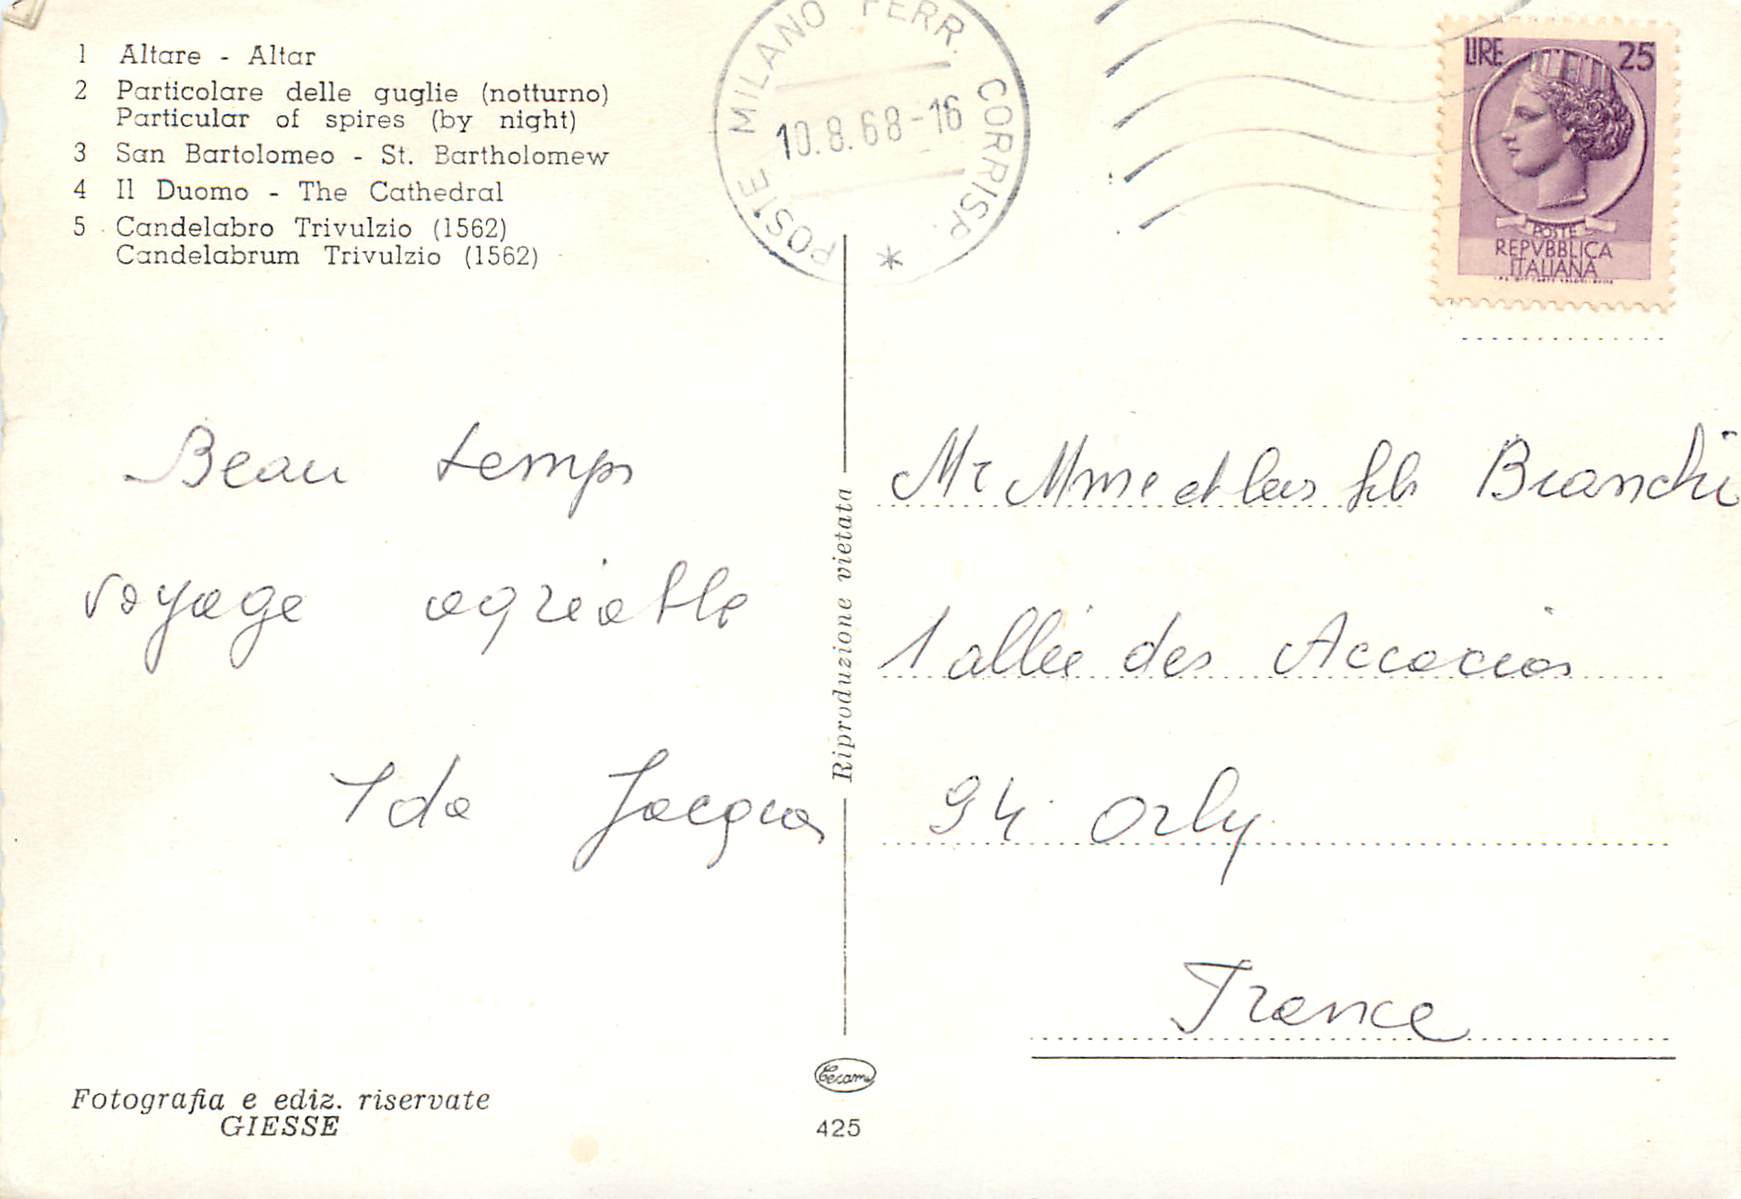 1 Altare - Altar
2 Particolare delle guglie (notturno)
Particular of spires (by night)
3 San Bartolomeo - St. Bartholomew
4 Il Duomo - The Cathedral
5 Candelabro Trivulzio (1562)
Candelabrum Trivulzio (1562)
POSTE MILANO FERR. CORRISP. *
10.8.68-16
LIRE 25
POSTE
REPVBBLICA
ITALIANA
Beau temps
voyage agréable
Ida Jacques
Riproduzione vietata
Mr Mme et leurs fils Bianchi
1 allée des Accacias
94 Orly
France
Fotografia e ediz. riservate
GIESSE
425